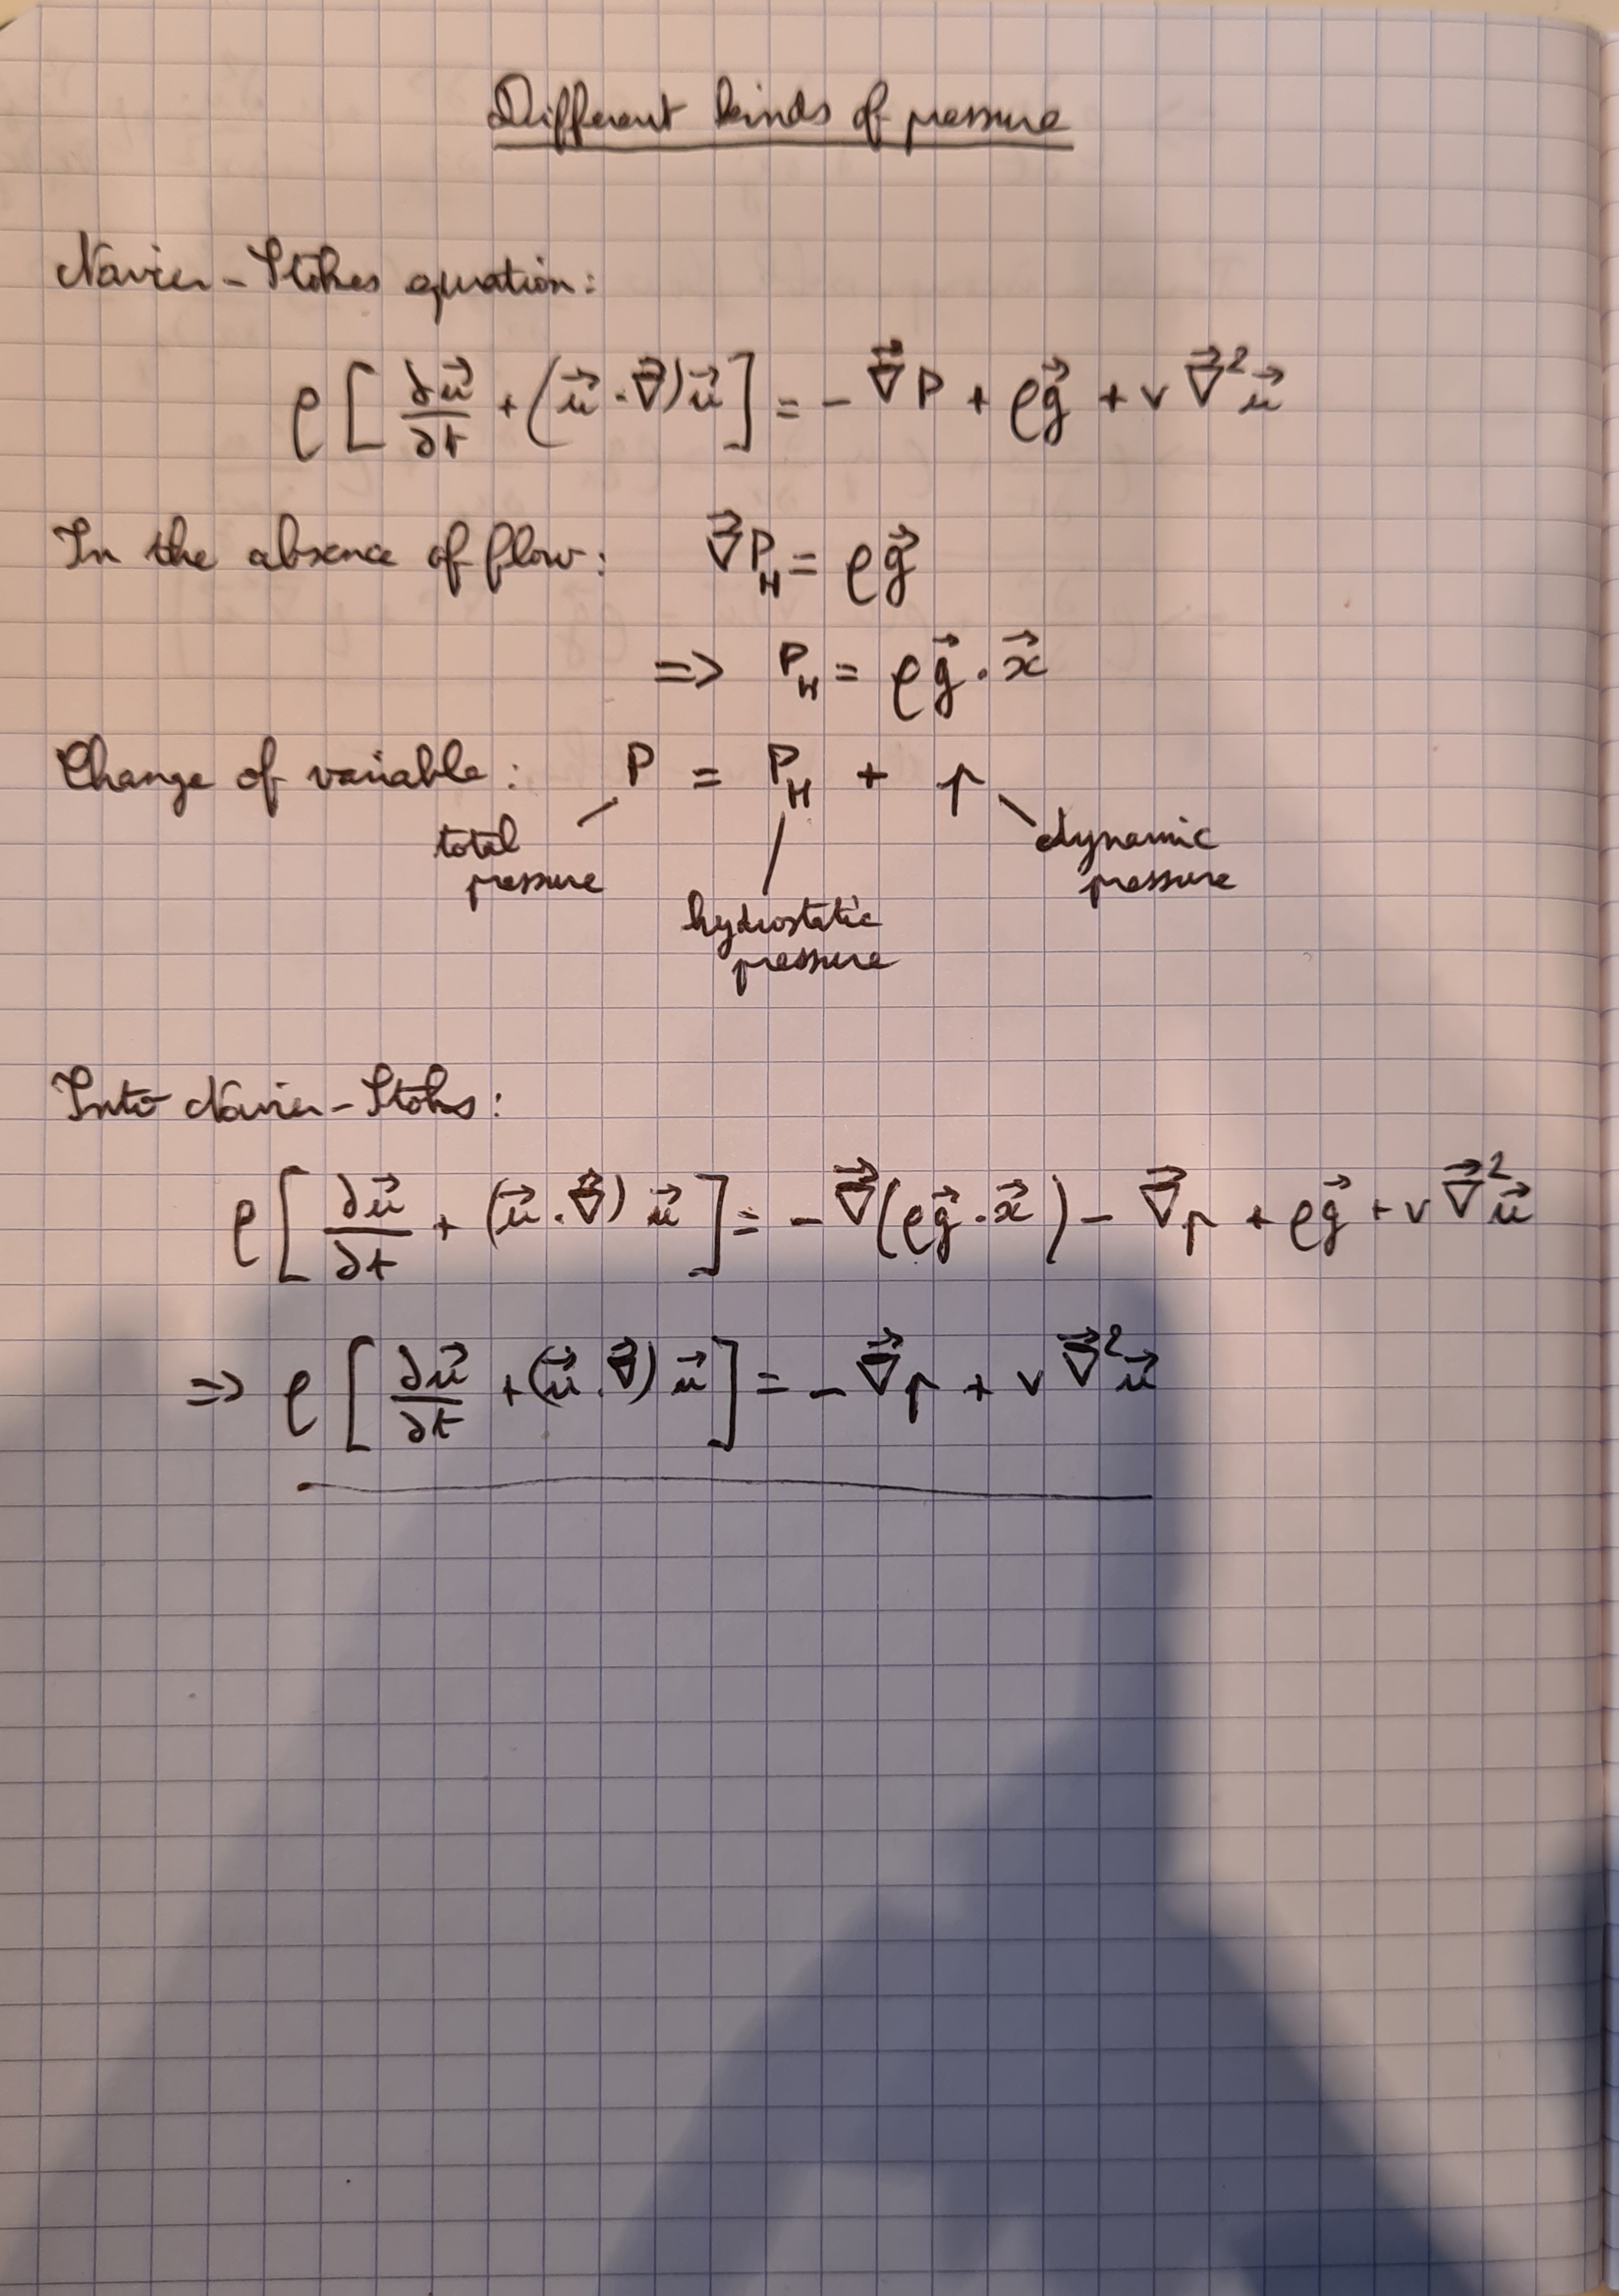 Different kinds of pressure
Navier-Stokes equation:
ρ [ ∂u⃗/∂t + (u⃗ · ∇⃗) u⃗ ] = - ∇⃗P + ρg⃗ + ν ∇⃗²u⃗
In the absence of flow: ∇⃗P_H = ρg⃗
=> P_H = ρg⃗ · x⃗
Change of variable: P = P_H + p
total pressure
hydrostatic pressure
dynamic pressure
Into Navier-Stokes:
ρ [ ∂u⃗/∂t + (u⃗ · ∇⃗) u⃗ ] = - ∇⃗(ρg⃗ · x⃗) - ∇⃗p + ρg⃗ + ν ∇⃗²u⃗
=> ρ [ ∂u⃗/∂t + (u⃗ · ∇⃗) u⃗ ] = - ∇⃗p + ν ∇⃗²u⃗